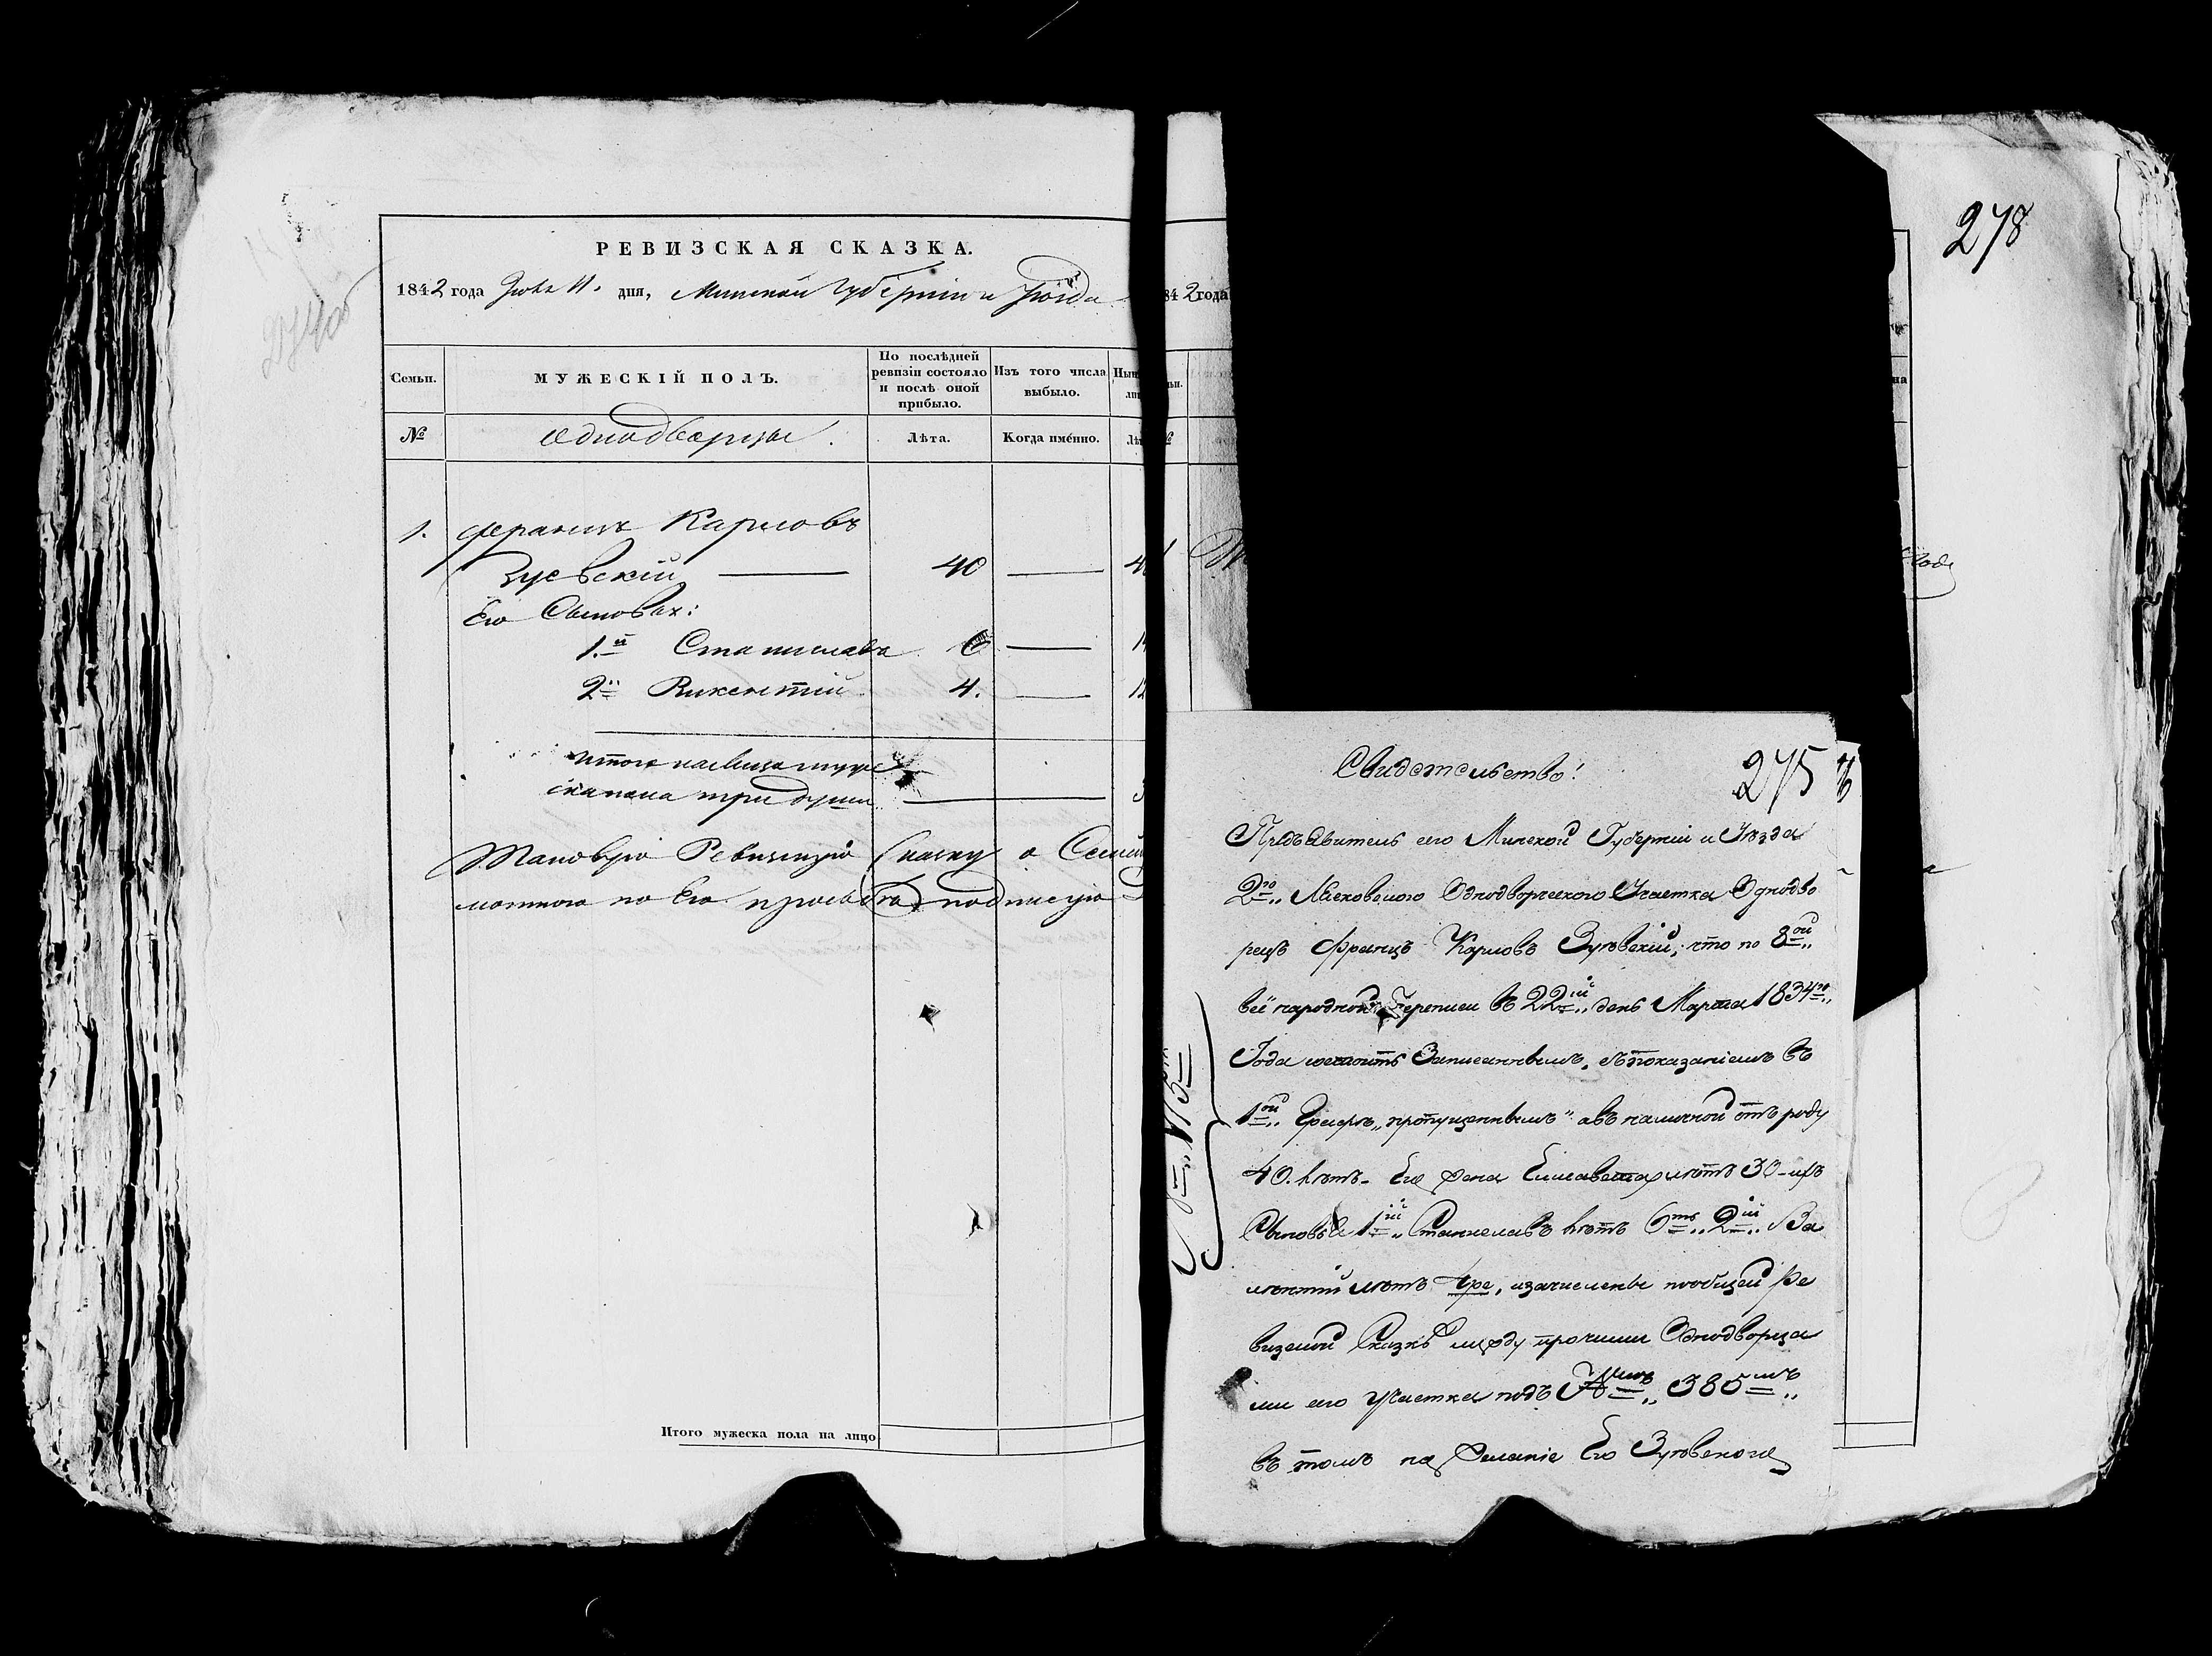 РЕВИЗСКАЯ СКАЗКА.
1842 года Июня 11. дня, Минской Губернiи и Уѣзда
Семьи.
МУЖЕСКIЙ ПОЛЪ.
По послѣдней ревизiи состояло и послѣ оной прибыло.
Изъ того числа выбыло.
№
Однодворцы.
Лѣта.
Когда имéнно.
1. Францъ Карловъ
Зуевскiй 40
Его Сыновья:
1.й Станиславъ 6
2й Викентiй 4.
Итого налицо муже
скаго пола три души
Таковую Ревизкую Сказку о
по Его прозьбѣ подписую
Итого мужеска пола на лицо
84 2 года
278
275
Свидетельство!
Предъявитель сего Минской Губернiи и Уѣзда
2го Однодворческого Участка Однодво
рецъ Францъ Карловъ Зуѣвскiй, что по 8ой
всенародной Переписи въ 22й день Марта 1834го
Года состоитъ Записаннымъ, съ показанiемъ въ
1ой Графѣ пропущеннымъ а въ наличной отъ роду
40. лѣтъ. Его жена Елисавета лѣтъ 30 ихъ
Сыновья 1й Станиславъ лѣтъ 6ть 2й Ва
лѣнтiй лѣтъ 4ре, и зачислены по общей Ре
визской Сказкѣ между прочими Однодворца
ми сего Участка подъ №мъ 385мъ
въ томъ на Желанiе Его Зуѣвского